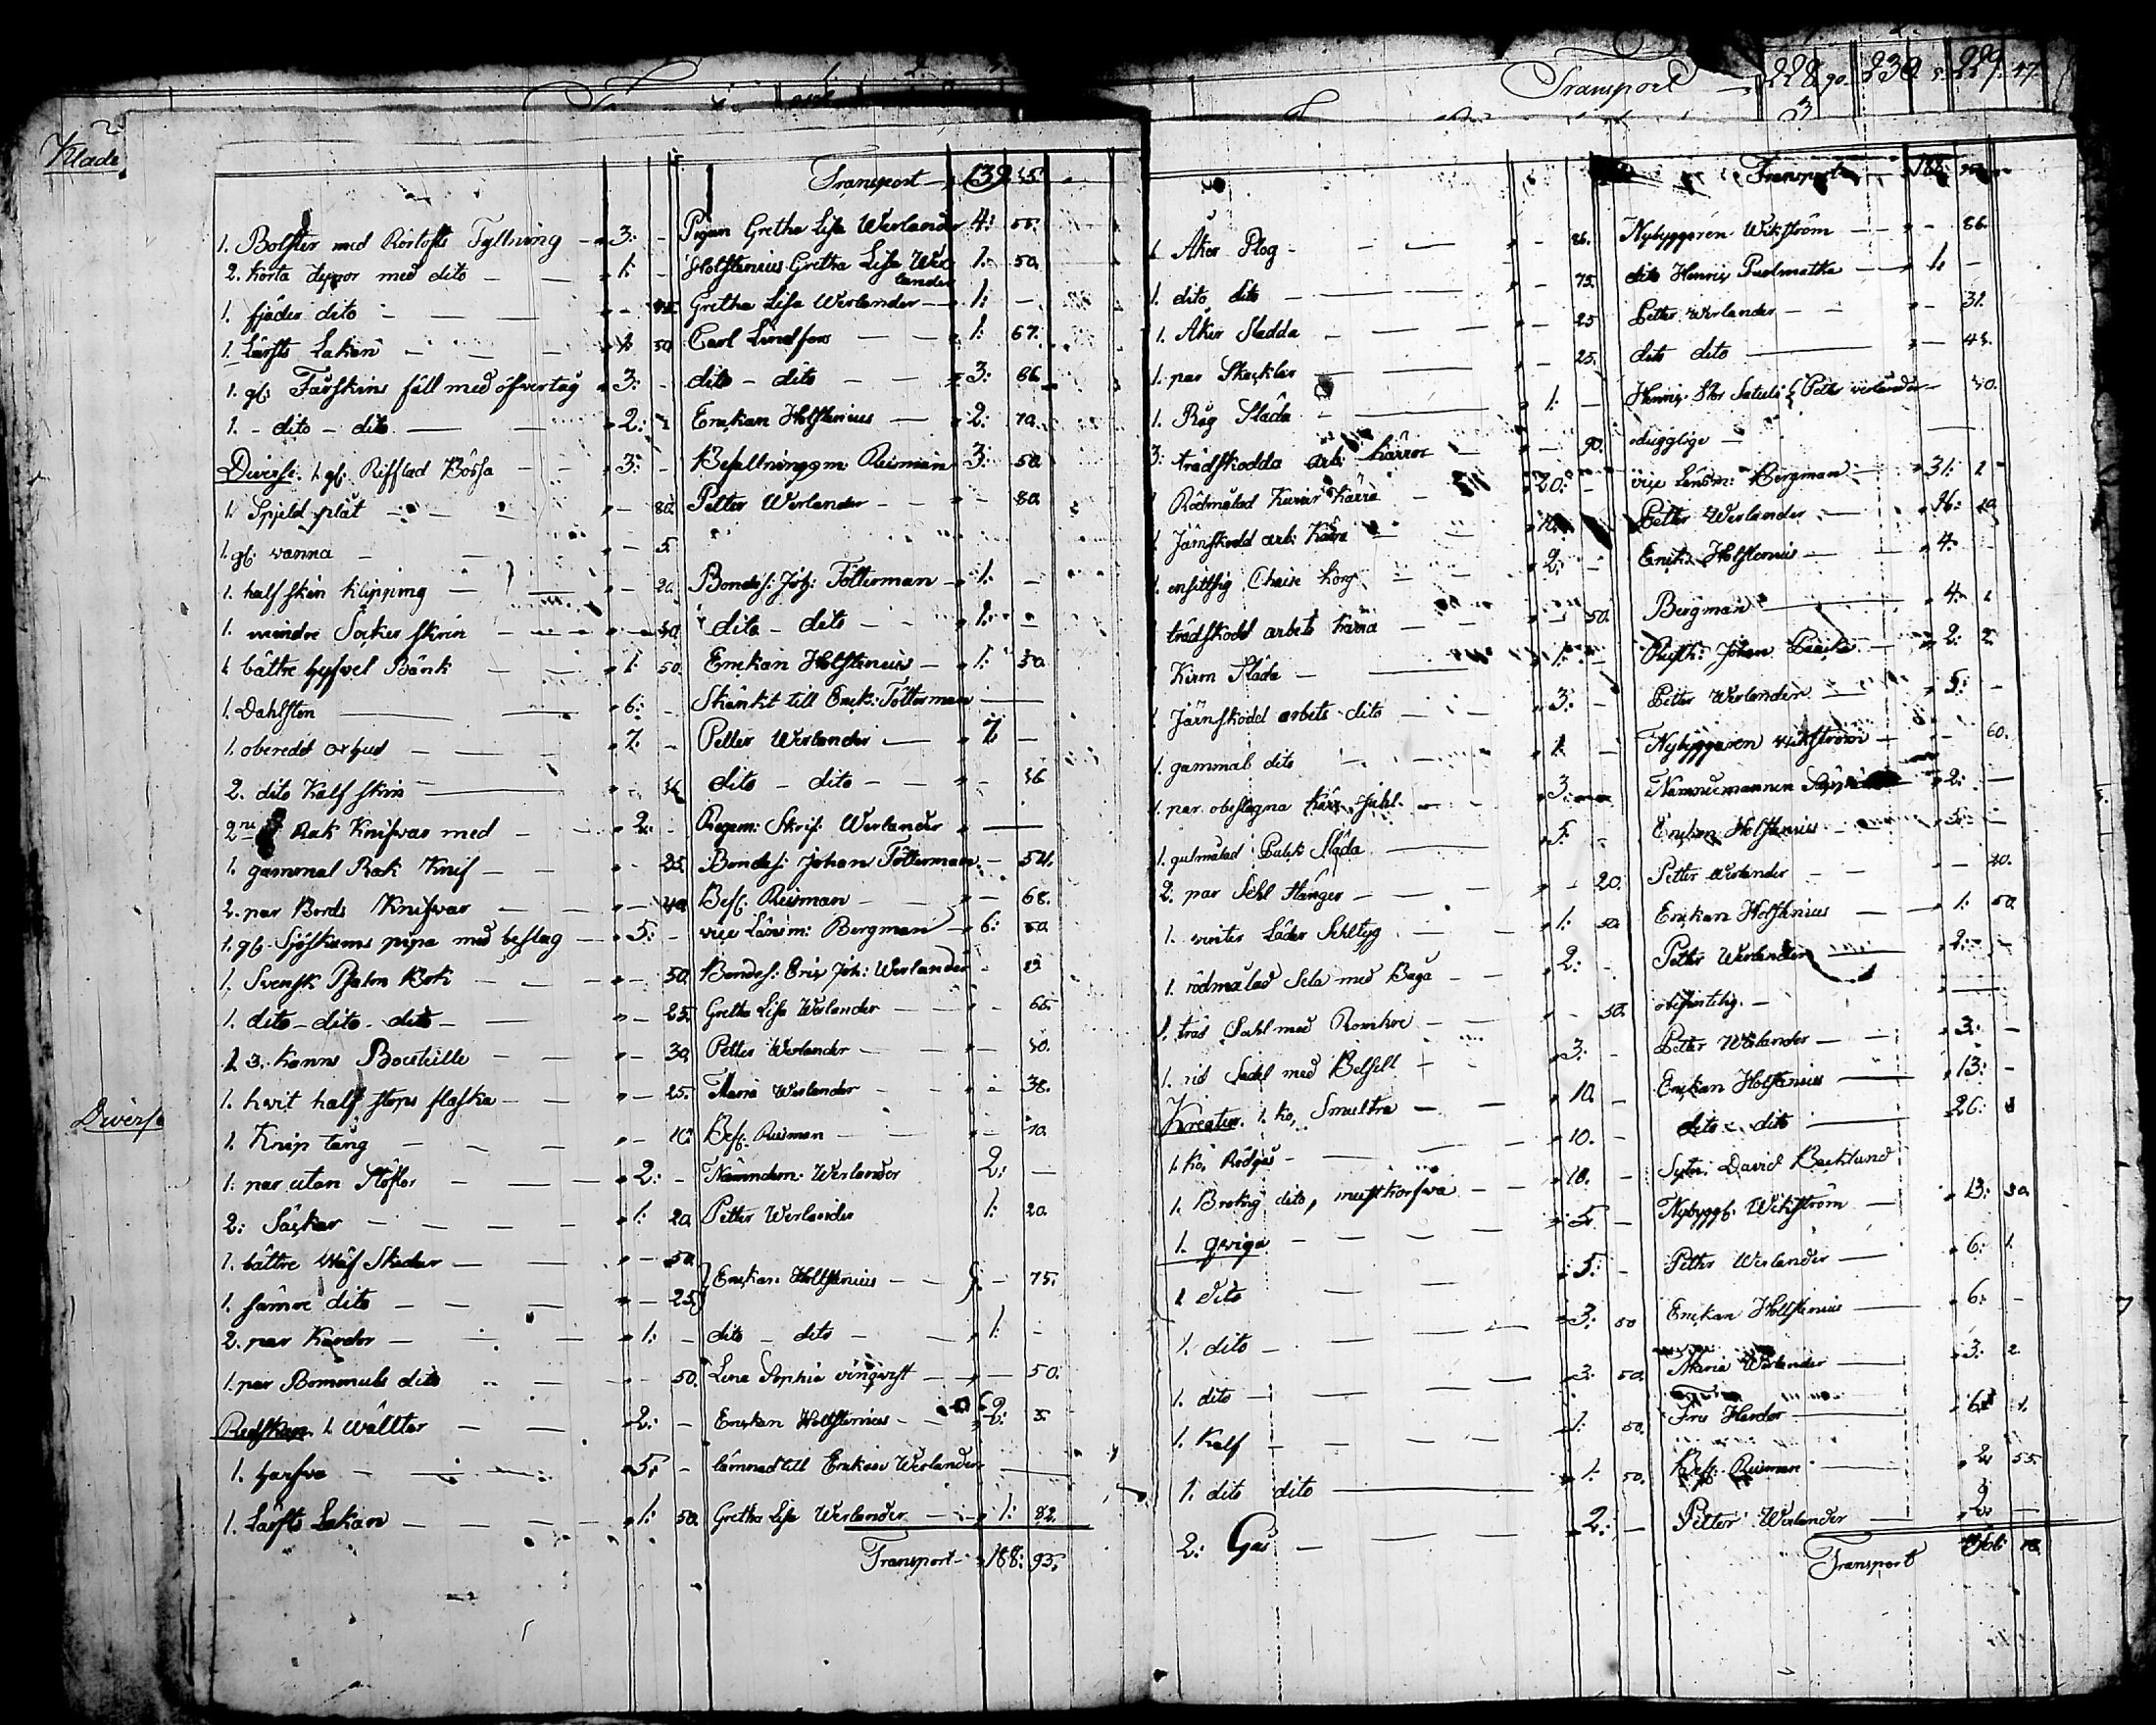 Kläde
Transport 132 45
1. Bolster med Rörtofts Fyllning 3: - Pigan Gretha Lisa Werlander 4: 55.
2. korta dynor med dito 1: - Holstenius Gretha Lisa Wer 1: 50.
lander
1. fjäder dito Gretha Lisa Werlander 1: -
1. Lärfts Lakan 1: 50 Carl Lindfors 1: 67.
1. gl: Fårskins fäll med öfvertåg 3: - dito - dito 3: 66
1. - dito - dito 2: Enckan Holstenius 2: 70.
Diverse. 1. gl: Rifflad Bössa 3: - Befallningzm: Reiman 3: 50.
1. Spjeld plåt 80. Petter Werlander 80.
1. gl: wanna 5.
1. half skin klipping 20. Bondes: Joh: Tötterman 1: -
1. mindre Socker skrin 40. dito - dito 1: -
1. bättre hyfvel Bänk 1: 50. Enckan Holstenius 1: 50.
1. Dahlsten 6: - Skänkt till Enck: Tötterman
1. oberedd oxhud 7. - Petter Werlander 7. -
2. dito Kalf skin 36 dito - dito 36
2ne Rak Knifvar med 2. - Regem: Skrif: Werlander
1. gammal Rak Knif 25. Bondes: Johan Tötterman 54.
2. par Bords Knifvar 40. Bef: Reiman 68.
1. gl: Sjöskums pipa med beslag 5: - vice Länsm: Bergman 6: 50.
1. Svensk Psalm Bok 50. Bondes: Eric Joh: Werlander
1. dito - dito - dito 25. Gretha Lisa Werlander 65.
1. 3. Kanns Bouteille 30. Petter Werlander 40.
Diverse
1. hvit half stops flaska 25. Maria Werlander 38.
1. Knip tång 10. Bef: Reiman 10.
1. par utan Stöflor 2: - Nämndem: Werlander 2: -
2: Säckar 1: 20. Petter Werlander 1: 20.
1. bättre Wäf Skedar 50.
Enckan Hollstenius 75.
1. sämre dito 25.
2. par Kardor 1: - dito - dito 1: -
1. par Bommuls dito 50. Lena Sophia vinqvist 50.
Redskap. 1. Wälltar 2: - Enckan Hollstenius 2: 5.
1. harfva 5: - lämnad till Enkan Werlander
1. Lärfts Lakan 1: 50. Gretha Lisa Werlander 1: 82.
Transport 188: 93.
Transport 228 90. 230 5. 229. 47.
Transport 188: 93
1. Åker Plog 86. Nybyggaren Wikström 86.
1. dito dito 75. dito Henric Pudmatka 1: -
1. Åker Sladda 25 Petter Werlander 31.
1. par Skacklar 25. dito dito 45.
1. Råg Släda 1: - Petter Werlander 40.
3: trädskodda arb: kärror 90. odugglige
1. Rödmålad Kurir kärra 20: - vice Länsm: Bergman 31: 1
1. Järnskodd arb: Kärra 10. Petter Werlander 16: 20.
1. ensittsig Chaise korg 2: - Enck: Holstenius 4: -
1. trädskodd arbets kärra 50. Bergman 4:
1. Kärm Släda 1: - Rusth: Johan 2: 2.
1. Järnskodd arbets dito 3: - Petter Werlander 5: -
1. gammal dito 1: - Nybyggaren wikström 60.
1. par obeslagna kärr hjuhl 3: Nämndemannen 2: -
1. gulmålad Pulck Släda 5. - Enckan Holstenius 5: -
2. par Sehl Stänger 20. Petter Werlander 20.
1. winter Läder Sehltyg 1: 50. Enckan Holstenius 1: 50.
1. rödmålad Sela med Båga 2: - Petter Werlander 2: -
1. träs Sahl med Romhve 50.
1. rid Sadel med Betsell 3: - Petter Werlander 3: -
Kreatur. 1. ko, Smultra 10. - Enckan Holstenius 13: -
1. ko, Rödgås 10. - dito - dito 26: 1
1. Brokug dito, mustkorfwa 10. - Sytn: David Backlund
1. qwiga 5. - Nybygg: Wikström 13: 30.
1. dito 5: - Petter Werlander 6: 1.
1. dito 3: 50 Enckan Hollstenius 6: -
1. dito 3. 50. Maria Werlander 3: 2
1. Kalf 1: 50. Fru Herdor 6: 1.
1. dito dito 1: 50. Bef: Reiman 2 55.
2: Gås 2: - Petter Werlander 2: -
Transport